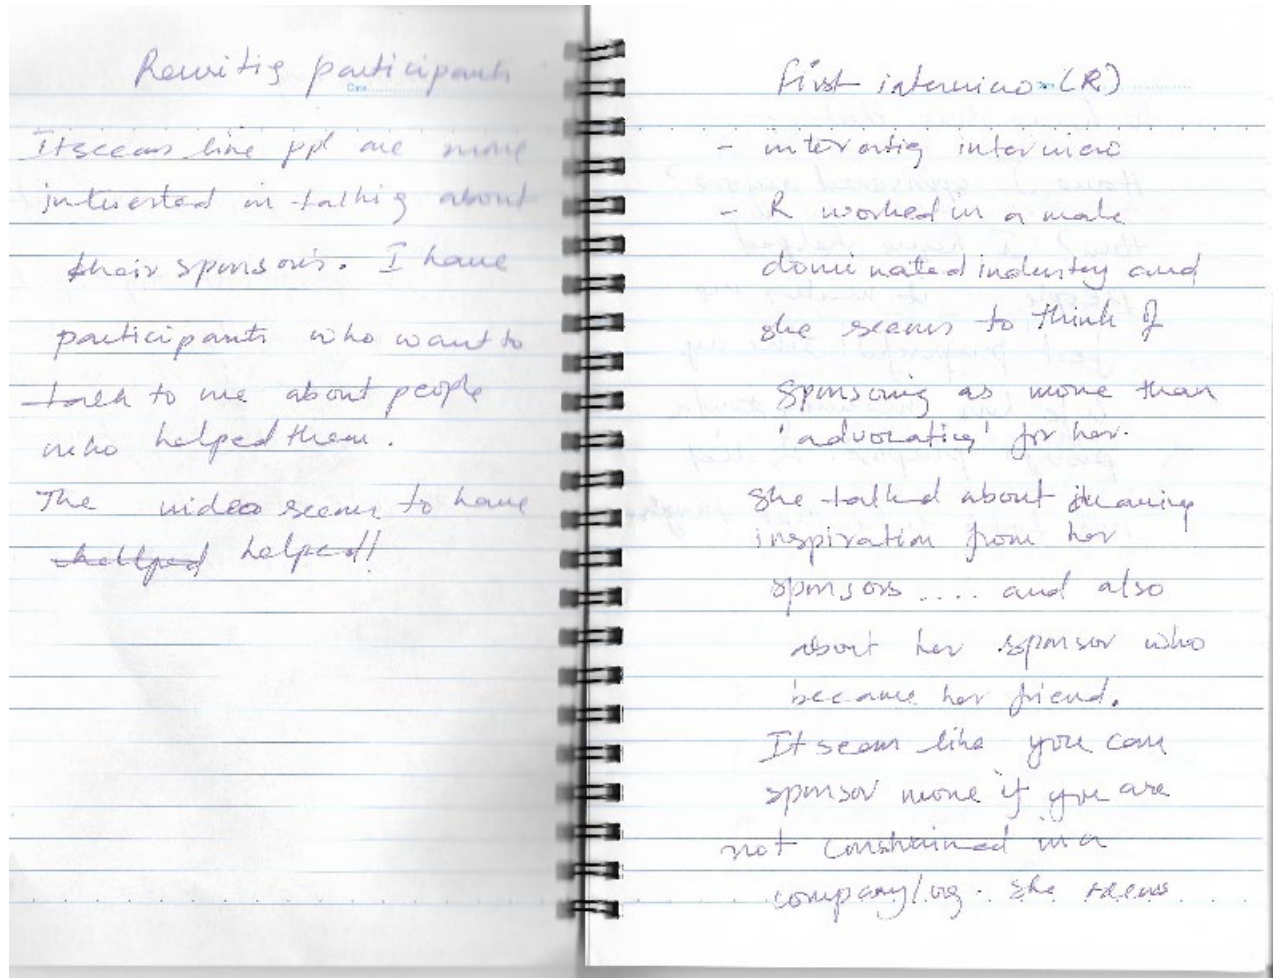 Recruiting participants
It seems like ppl are more
interested in talking about
their sponsors. I have
participants who want to
talk to me about people
who helped them.
The video seems to have
helped helped!
First interview (R)
- interesting interview
- R worked in a male
dominated industry and
she seems to think of
sponsoring as more than
'advocating' for her.
She talked about drawing
inspiration from her
sponsors .... and also
about her sponsor who
became her friend.
It seems like you can
sponsor more if you are
not constrained in a
company/org. She seems